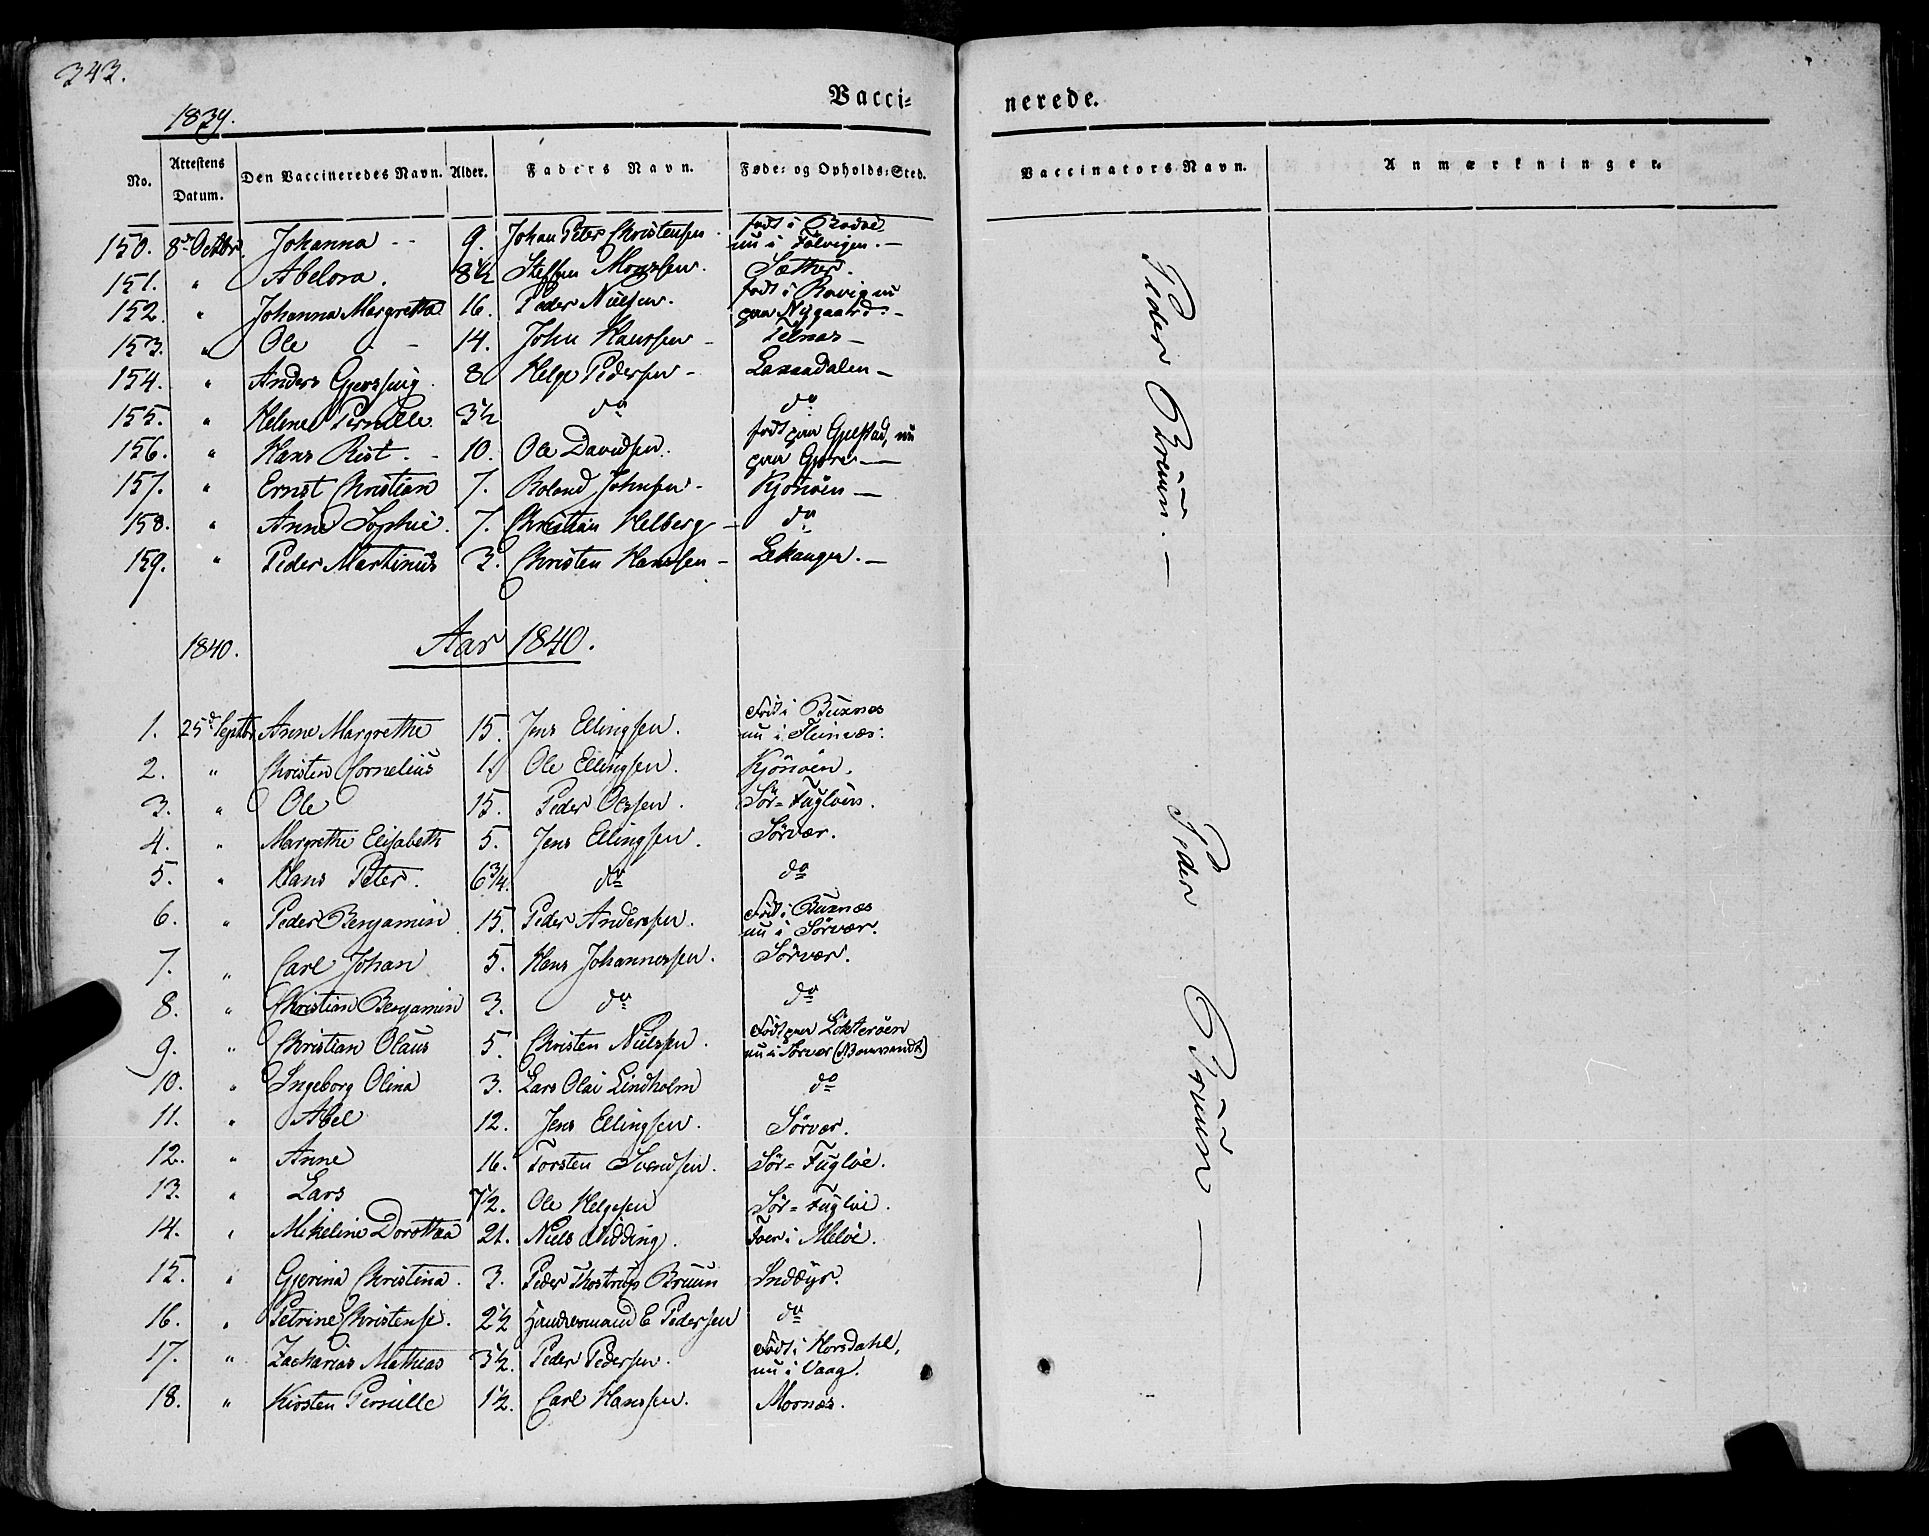 343.
Vacci- nerede.
1839.
No. Attestens Datum. Den Vaccineredes Navn. Alder. Faders Navn. Føde- og Opholds-Sted. Vaccinators Navn. Anmærkninger.
150. 8de Octbr. Johanna - - 9. Johan Peter Christensen. født i Rodøe nu i Følvigen. —
151. " Abelora. 8½ Steffen Monssen. Sæther.
152. " Johanna Margretha 16. Peder Nielsen. født i Rovig nu paa Nygaard. —
153. " Ole - - 14. John Hanssen - Telnæs —
154. " Anders 8 Helge Pedersen - Laxaadalen —
155. " Helene Pernille. 3½ do do
156. " Hans Rist. - 10. Ole Davidsen. født paa Gjelstad, nu paa Gjere —
157. " Ernst Christian 7. Roland Johnsen - Kjönöen —
158. " Anne Sophie. 7. Christian Helberg - do
159. " Peder Martinus 3. Christen Hanssen - Lekanger. —
Peder Brüün. —
1840. Aar 1840.
1. 25de Septbr Anne Margrethe 15. Jens Ellingsen. Født i Buxnæs nu i Fleinvæs.
2. " Christen Cornelius Ole Ellingsen. Kjönöen.
3. " Ole 15. Peder Olssen. Sör-Fuglöen.
4. " Margrethe Elisabeth 5. Jens Ellingsen. Sörvær.
5. " Hans Peter. 6¾. do do
6. " Peder Benjamin 15. Peder Anderssen. Født i Buxnæs nu i Sörvær.
7. " Carl Johan 5. Hans Johannessen. Sörvær.
8. " Christian Benjamin 3. do do
9. " Christian Olaus 5. Christen Nielssen. Født paa Lökteröen nu i Sörvær
10. " Ingeborg Olina 3. Lars Olai Lindholm do
11. " Abel 12. Jens Ellingsen. Sörvær.
12. " Anne 16. Torsten Svendsen. Sör-Fuglöe.
13. " Lars 7½. Ole Helgesen Sör-Fuglöe.
14. " Mikeline Dorothea 21. Niels Nidding. Foer i Melöe.
15. " Gjerina Christina. 3. Peder Thostrup Bruun Inddyr.
16. " Petrine Christense. 2½ E Pedersen do
17. " Zacharias Mathias 3½. Peder Pedersen. Født i Horsdahl, nu i Vaag.
18. " Kirsten Pernille 1½. Carl Hanssen. Mornæs.
Peder Brüün —